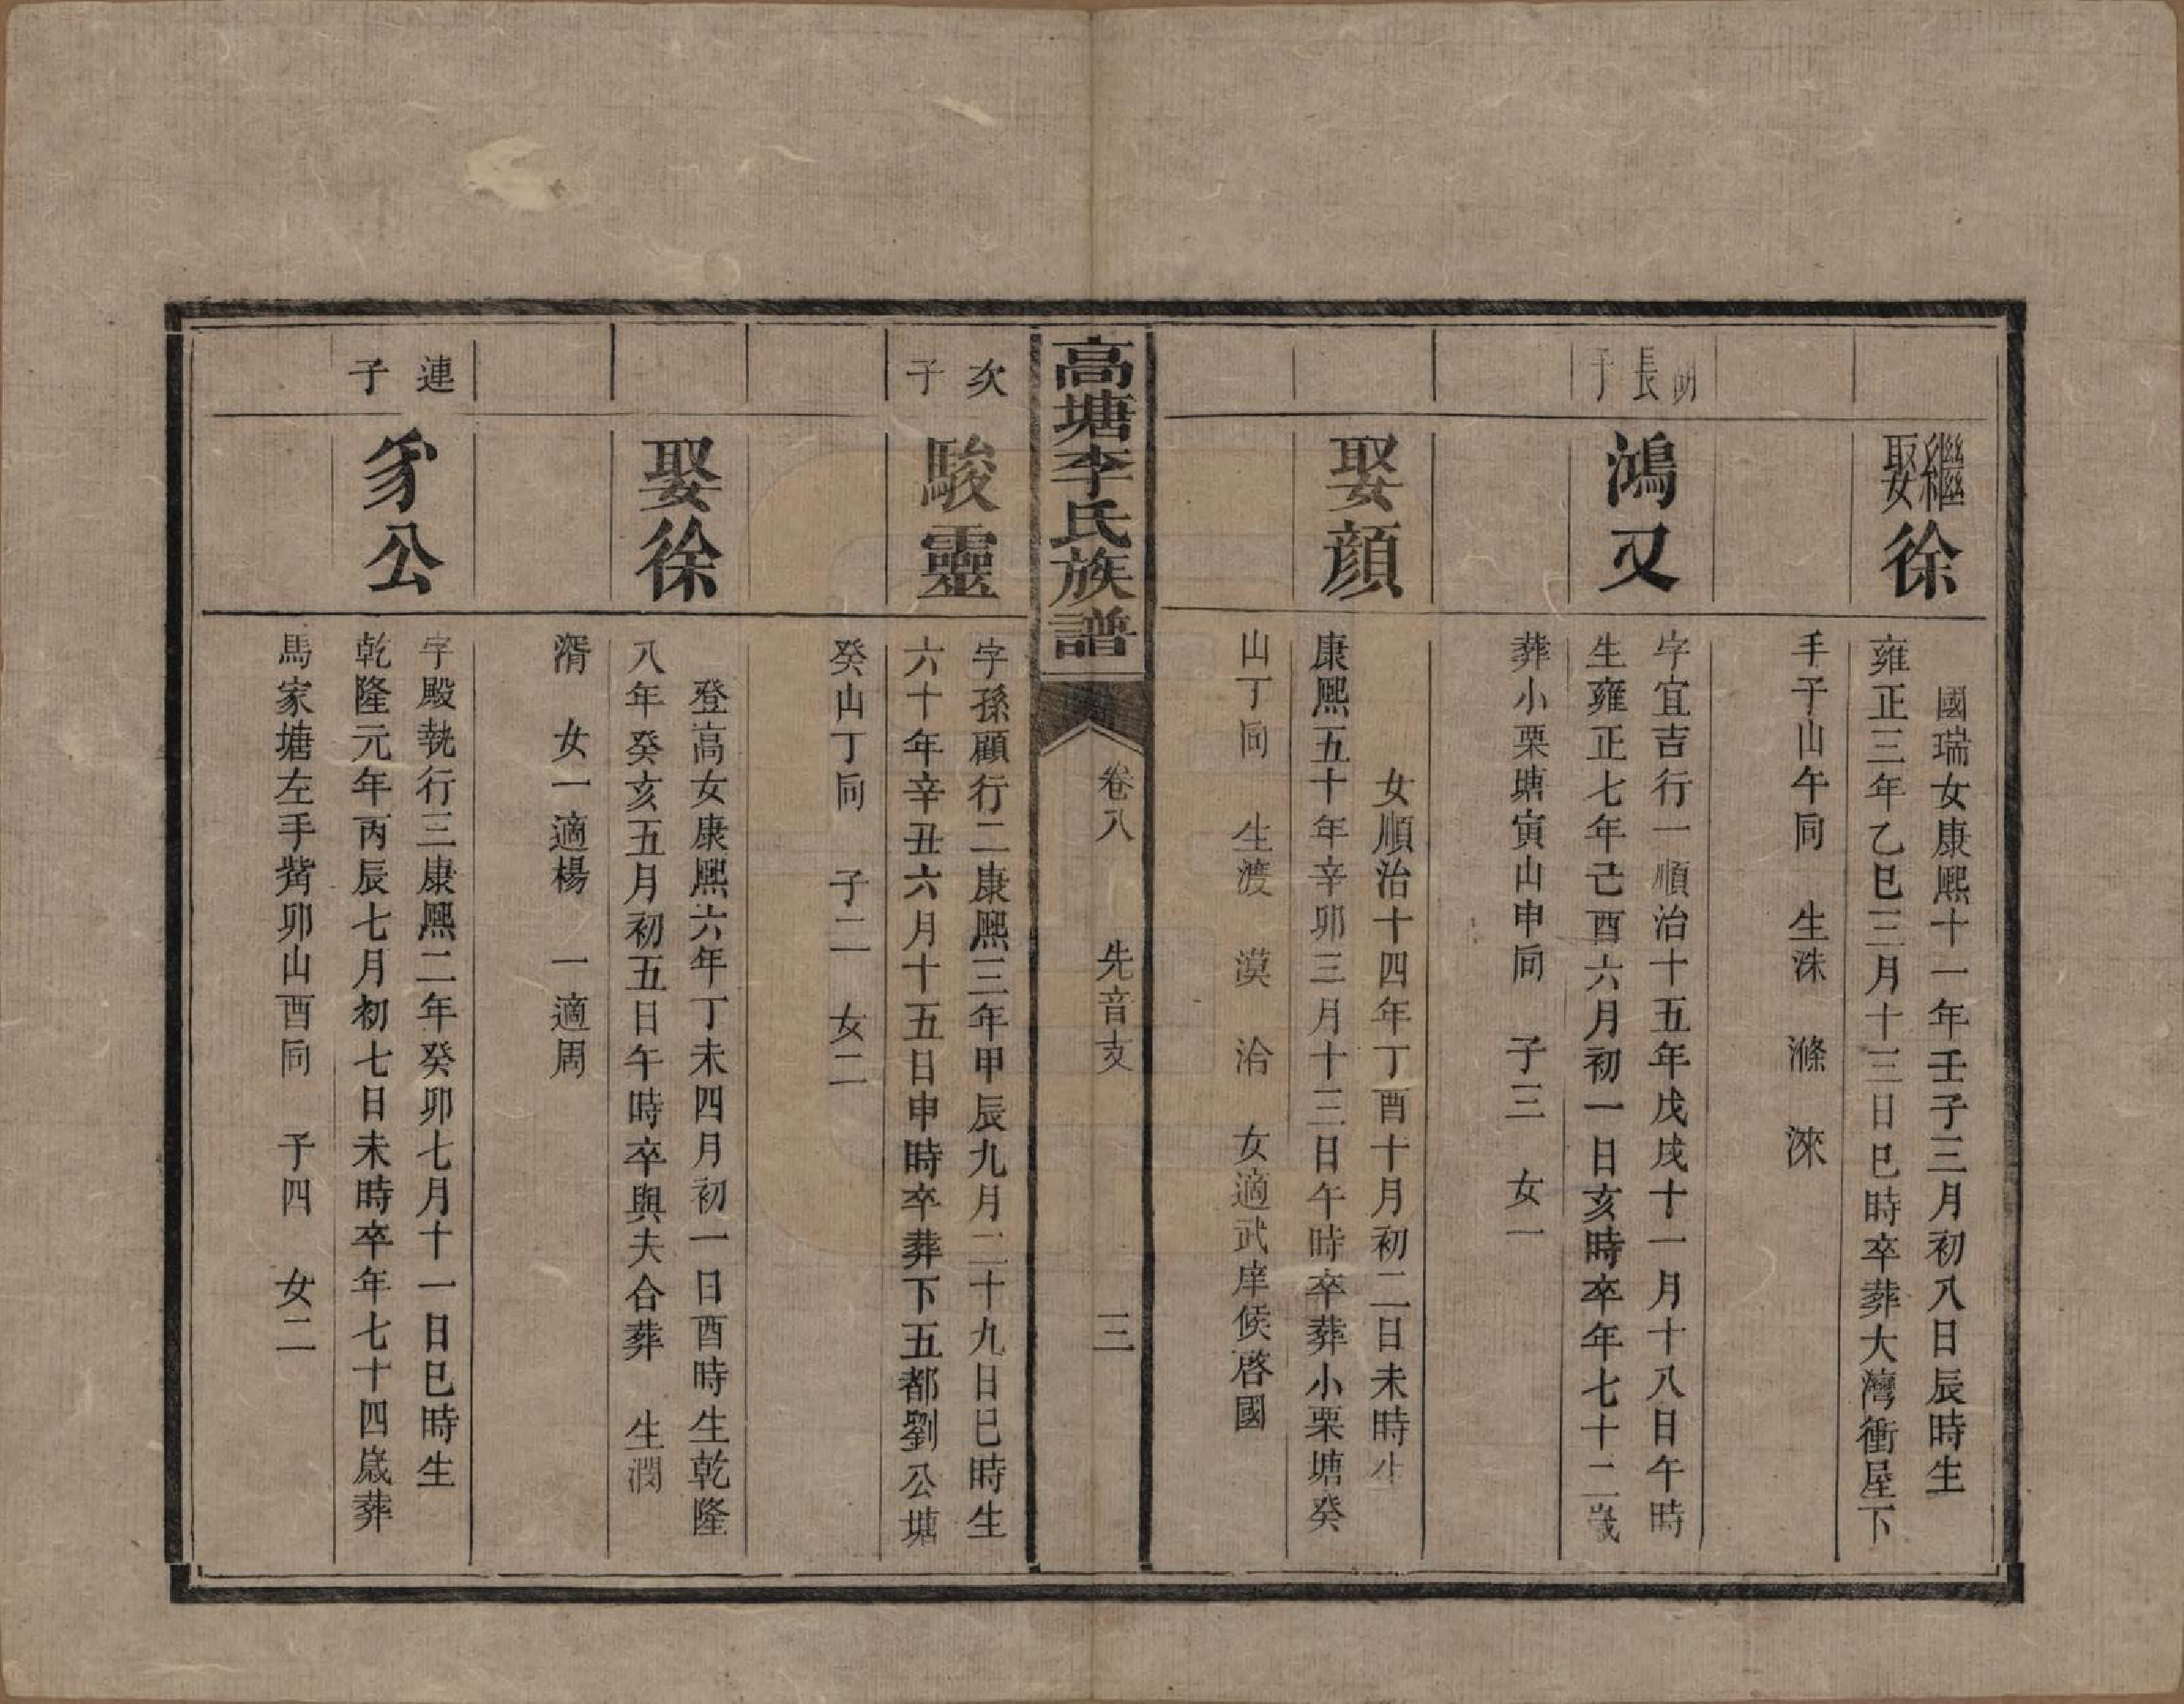 繼娶徐
國瑞女康熙十一年壬子三月初八日辰時生
雍正三年乙巳三月十三日巳時卒葬大灣衝屋下
手子山午同　生洙　滌　淶
明長子
鴻又
字宜吉行一順治十五年戊戌十一月十八日午時
生雍正七年己酉六月初一日亥時卒年七十二歲
葬小栗塘寅山申同　子三　女一
娶顏
女順治十四年丁酉十月初二日未時生
康熙五十年辛卯三月十三日午時卒葬小栗塘癸
山丁同　生渡　漠　洽　女適武庠候啓國
高塘李氏族譜
卷八　先音支　三
次子
駿靈
字孫顧行二康熙三年甲辰九月二十九日巳時生
六十年辛丑六月十五日申時卒葬下五都劉公塘
癸山丁同　子二　女二
娶徐
登高女康熙六年丁未四月初一日酉時生乾隆
八年癸亥五月初五日午時卒與夫合葬　生潤
湑　女一適楊　一適周
連子
豸公
字殿執行三康熙二年癸卯七月十一日巳時生
乾隆元年丙辰七月初七日未時卒年七十四歲葬
馬家塘左手觜卯山酉同　子四　女二